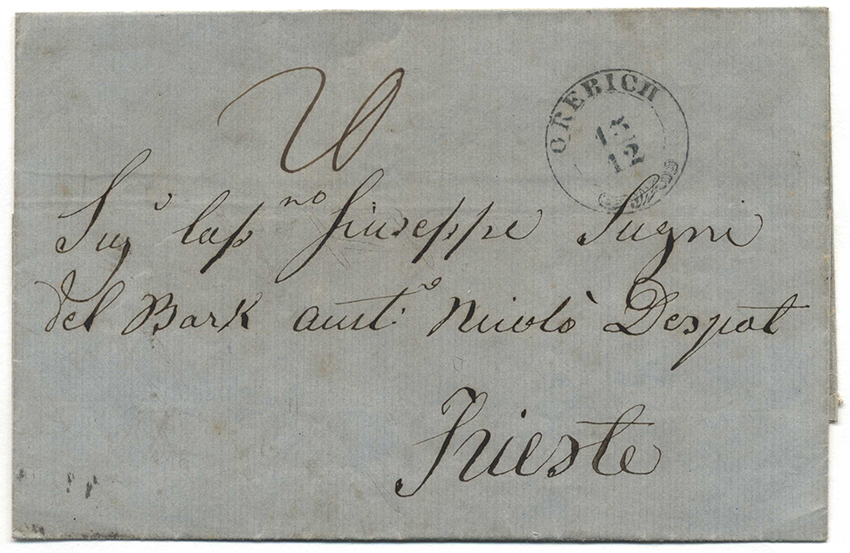 OREBICH
13
12
Sigʳ Capⁿᵒ Giuseppe Sugni
del Bark austº: Nicolò Despot
Trieste